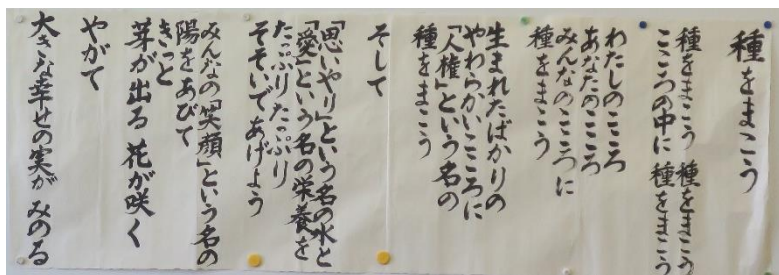 種をまこう
種をまこう 種をまこう
こころの中に 種をまこう
わたしのこころ
あなたのこころ
みんなのこころに
種をまこう
生まれたばかりの
やわらかいこころに
「人権」という名の
種をまこう
そして
「思いやり」という名の水と
「愛」という名の栄養を
たっぷりたっぷり
そそいであげよう
みんなの「笑顔」という名の
陽をあびて
きっと
芽が出る 花が咲く
やがて
大きな幸せの実が みのる